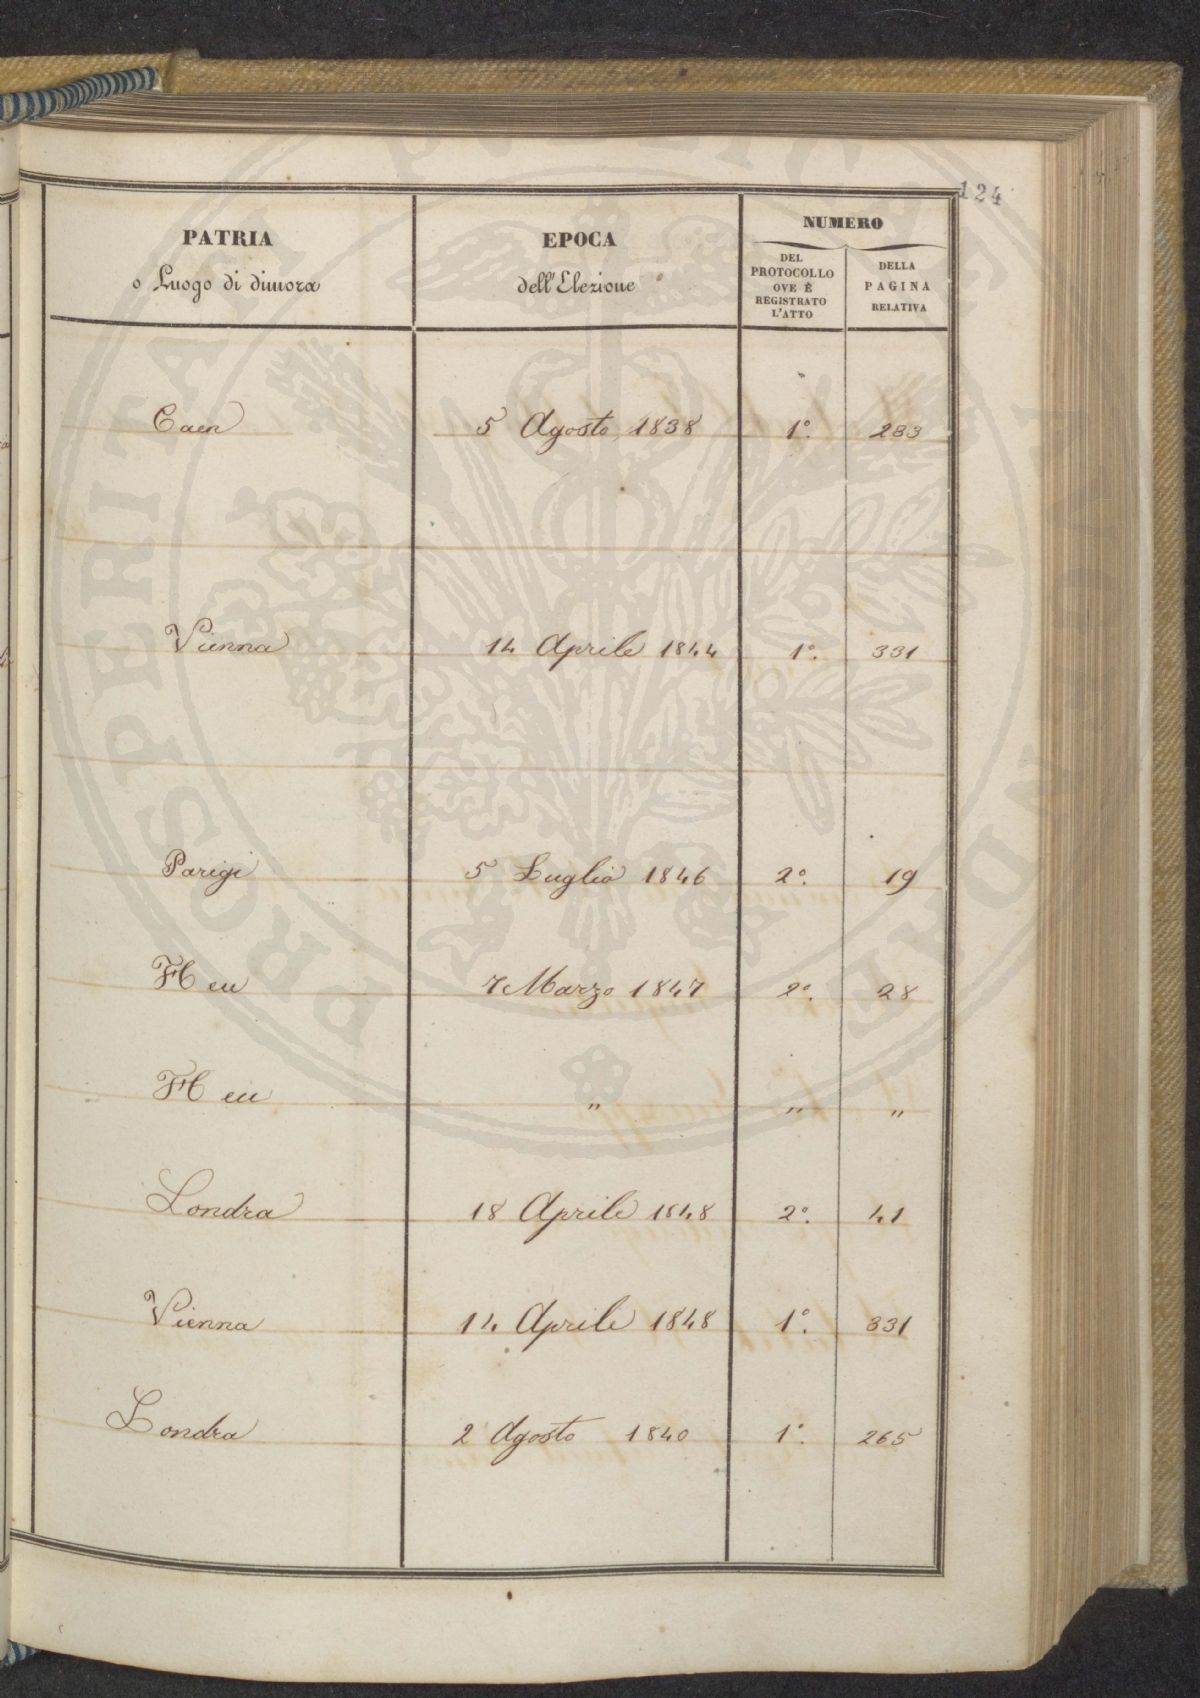 124
PATRIA
o Luogo di dimora
EPOCA
dell'Elezione
NUMERO
DEL
PROTOCOLLO
OVE È
REGISTRATO
L'ATTO
DELLA
PAGINA
RELATIVA
Caen 5 Agosto 1838 1°. 283
Vienna 14 Aprile 1844 1°. 331
Parigi 5 Luglio 1846 2°. 19
7 Marzo 1847 2°. 28
" " "
Londra 18 Aprile 1848 2°. 41
Vienna 14 Aprile 1848 1°. 331
Londra 2 Agosto 1840 1°. 265
PROSPERITATI PUBLICAE AUGENDAE